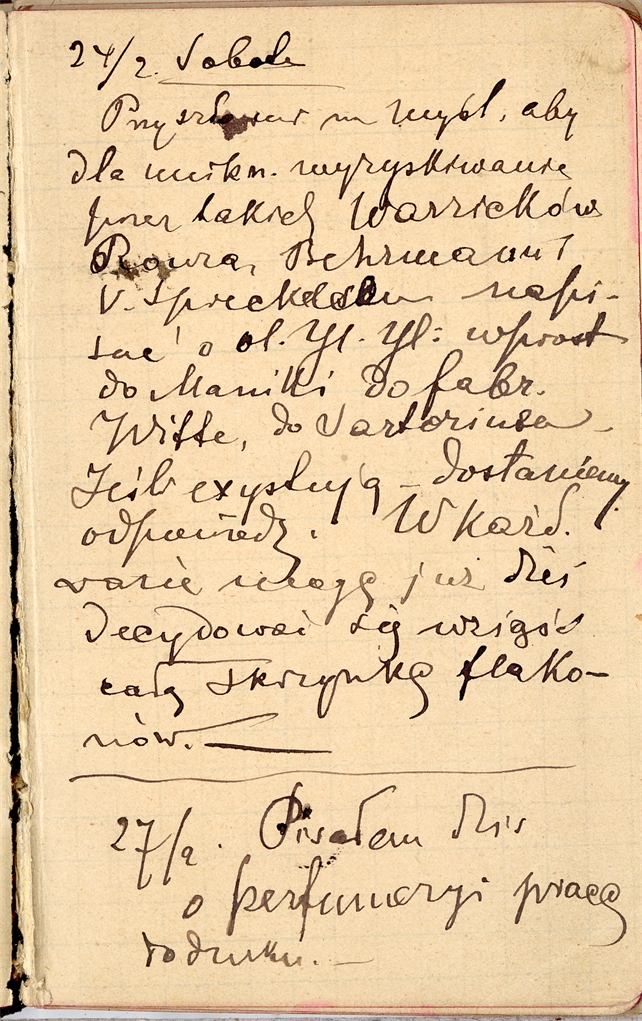 24/2. Sobota
Przyszło mi na myśl, aby
dla unikn. wyzyskiwania
przez takich Warricków
Rowra, Behrmanni
V. Spreckelsen napi-
sać o ol. Yl. Yl: wprost
do Manilli do fabr.
Witte, do Sartoriusa
Jeśli exystują – dostaniemy
odpowiedź. W każd.
razie mogę już dziś
decydować się wziąść
całą skrzynkę flako-
nów.
27/2. Pisałem dziś
o perfumeryi pracę
do druku. —